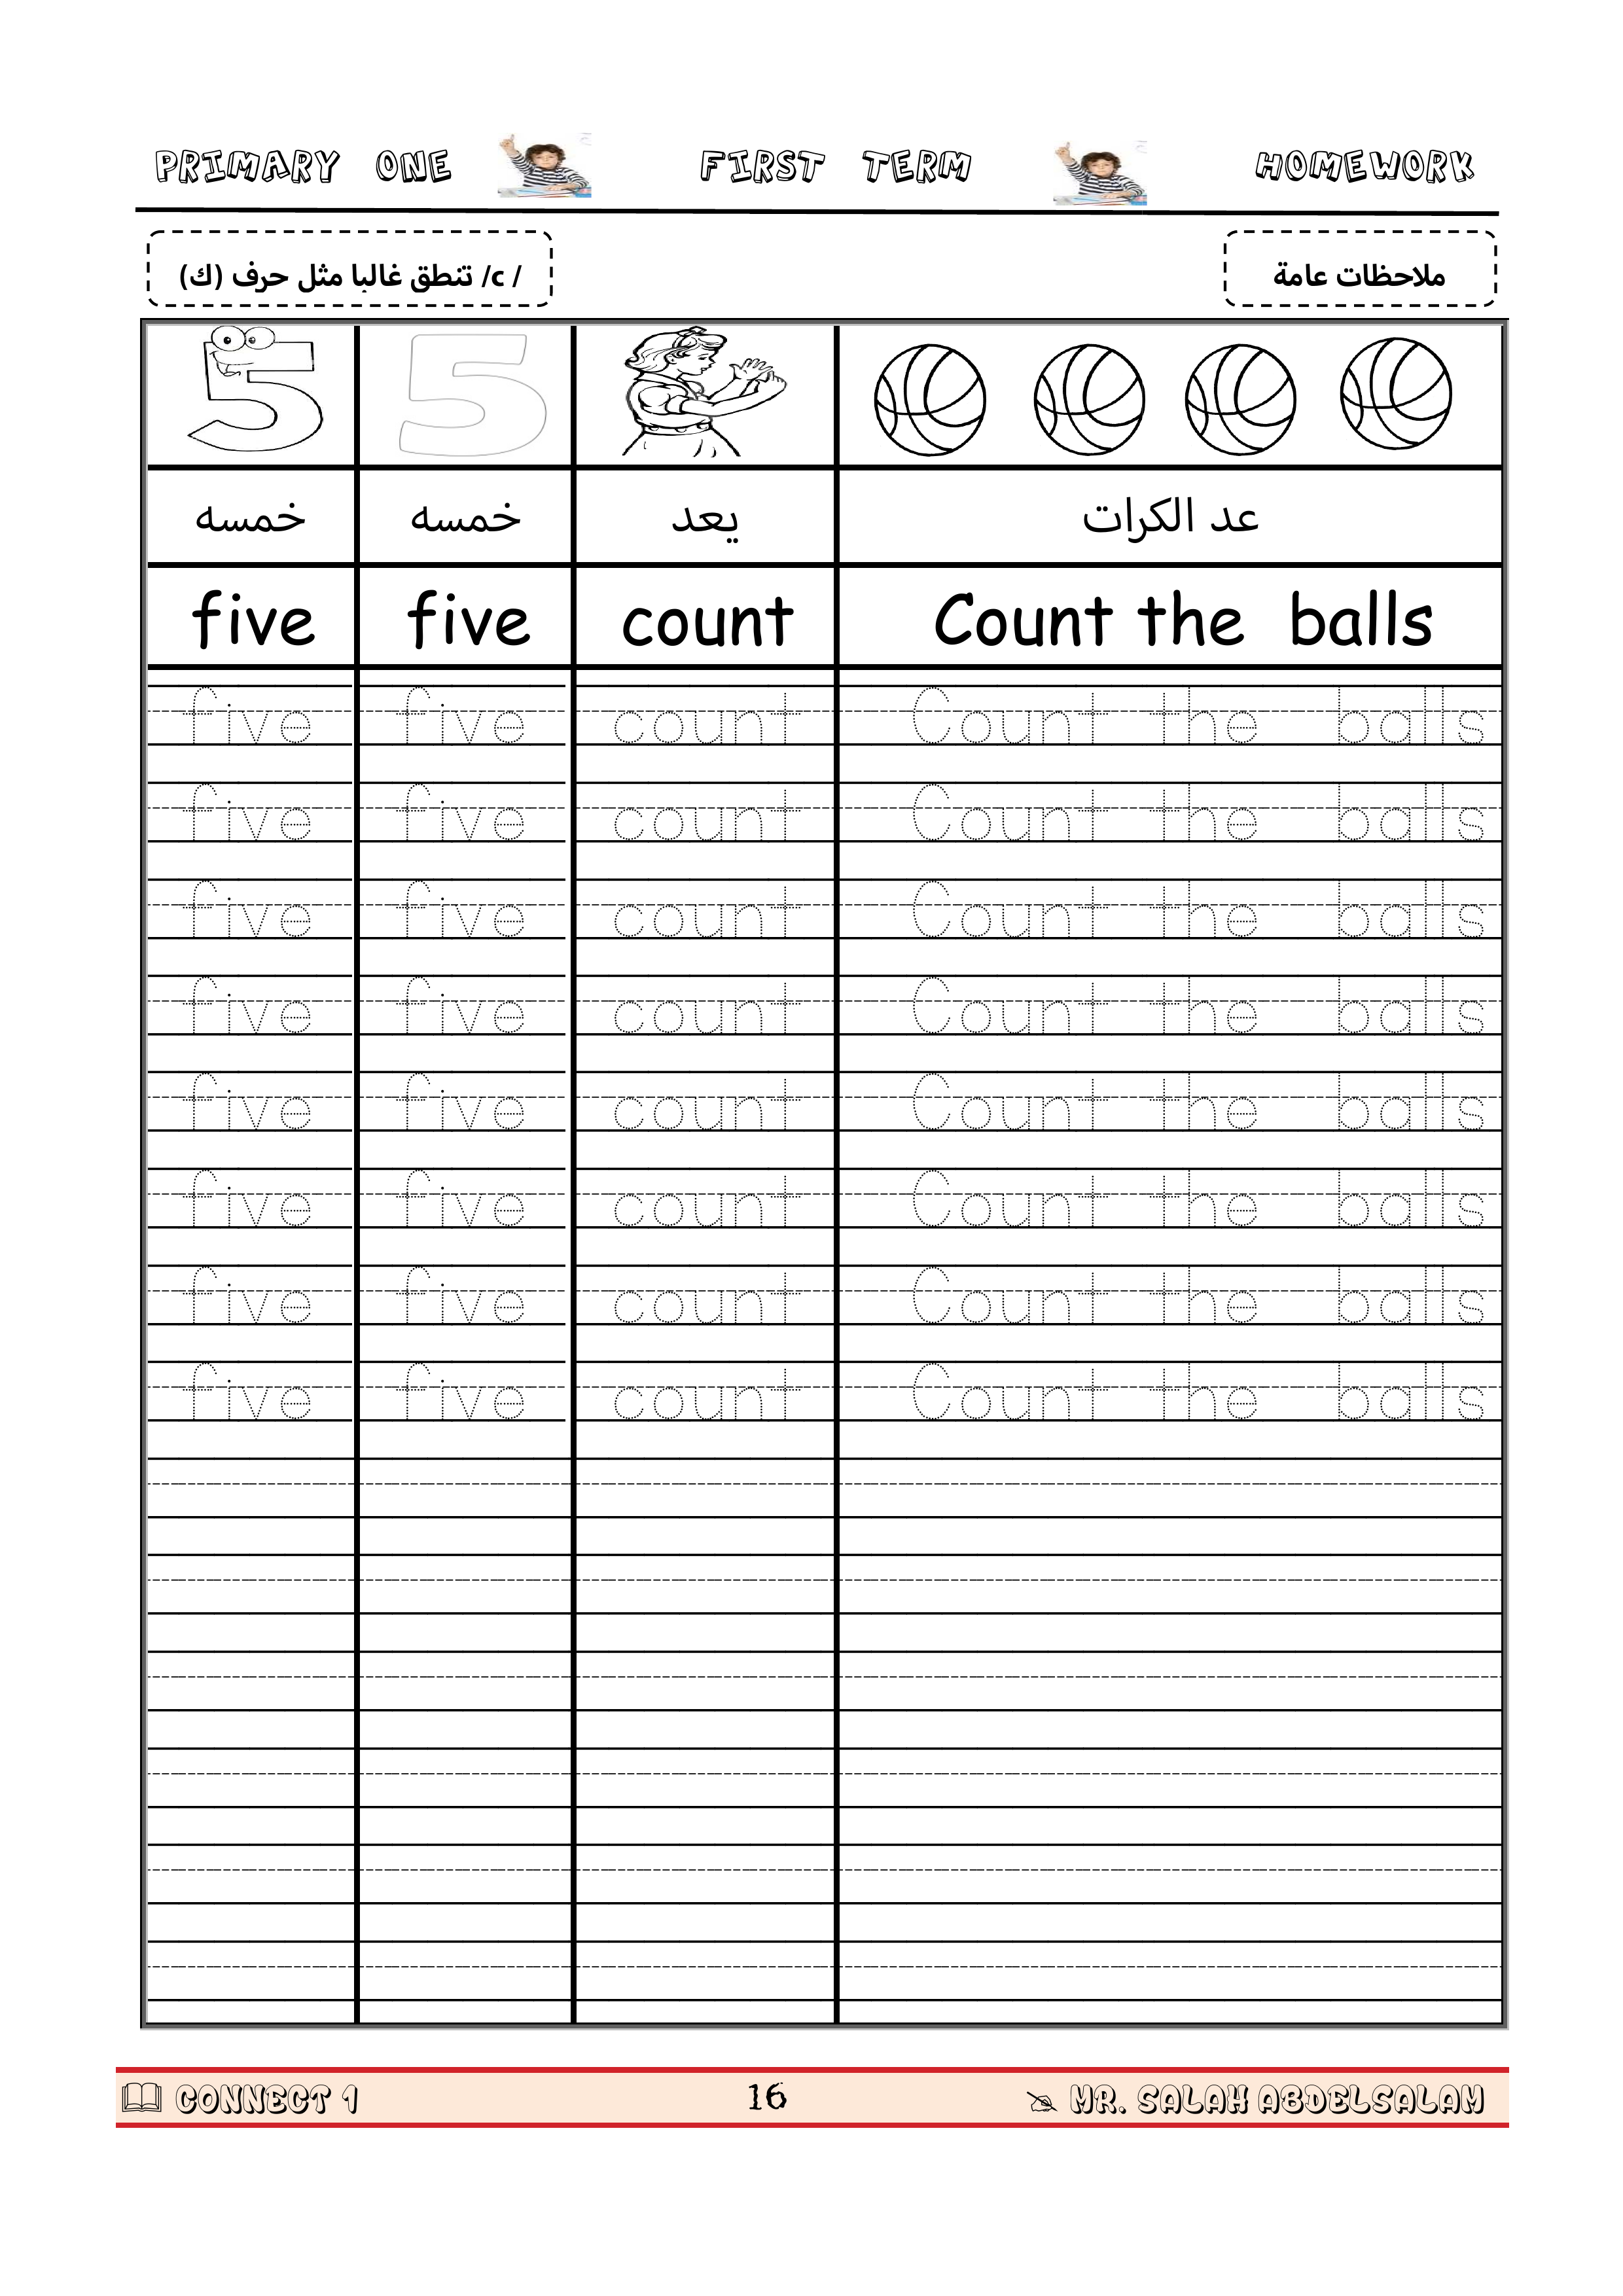 PRIMARY ONE FIRST TERM HOMEWORK
/ c/ تنطق غالبا مثل حرف (ك) ملاحظات عامة
خمسه خمسه يعد عد الكرات
five five count Count the balls
five five count Count the balls
five five count Count the balls
five five count Count the balls
five five count Count the balls
five five count Count the balls
five five count Count the balls
five five count Count the balls
five five count Count the balls
CONNECT 1 16 MR. SALAH ABDELSALAM